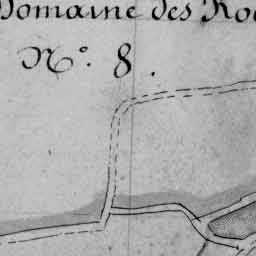 Domaine des
N.° 8.